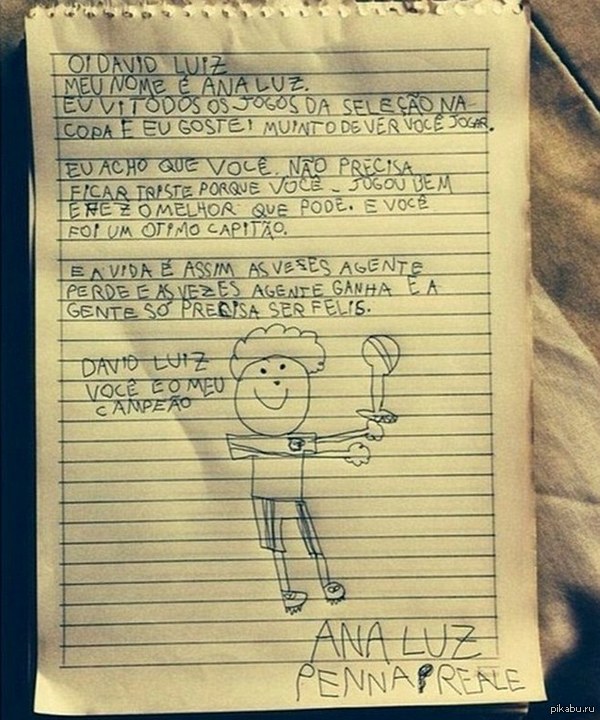 OI DAVID LUIZ
MEU NOME É ANA LUZ.
EU VI TODOS OS JOGOS DA SELEÇÃO NA
COPA E EU GOSTEI MUINTO DE VER VOCÊ JOGAR.
EU ACHO QUE VOCÊ NÃO PRECISA
FICAR TRISTE PORQUE VOCÊ JOGOU BEM
E FEZ O MELHOR QUE PODE. E VOCÊ
FOI UM OTIMO CAPITÃO.
E A VIDA É ASSIM AS VESES AGENTE
PERDE E AS VEZES AGENTE GANHA E A
GENTE SÓ PRECISA SER FELIS.
DAVID LUIZ
VOCÊ E O MEU
CAMPEÃO
ANA LUZ
PENNA PREALE
pikabu.ru